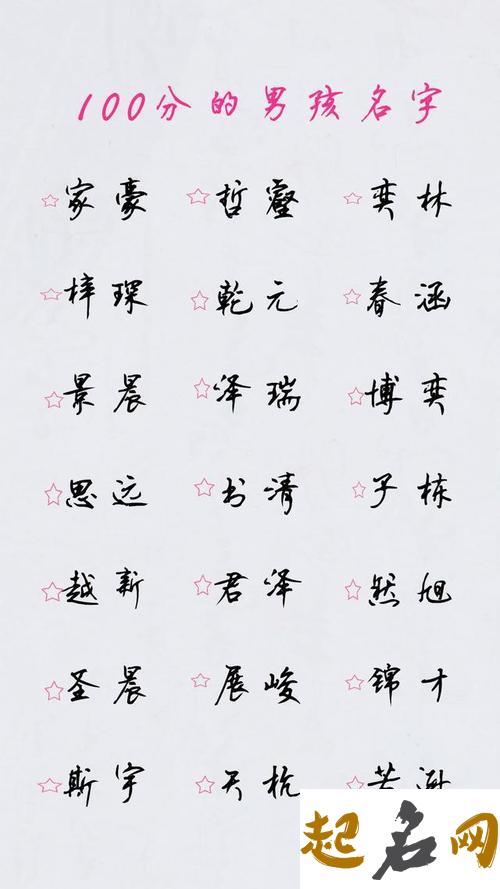 100分的男孩名字
家豪 哲壑 奕林
梓琛 乾元 春涵
景晨 泽瑞 博奕
思远 书清 子栋
越新 君泽 然旭
圣晨 展峻 锦才
斯宇 天杭
起名网